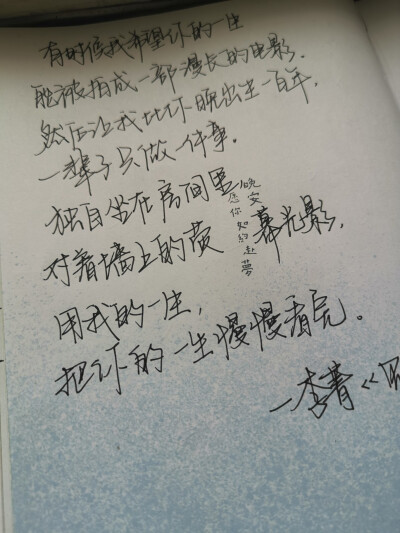 有时候我希望你的一生
能被拍成一部漫长的电影.
然后让我比你晚出生一百年,
一辈子只做一件事.
独自坐在房间里
对着墙上的荧幕光影,
晚安
愿你如約赴夢
用我的一生,
把你的一生慢慢看完。
—李菁《